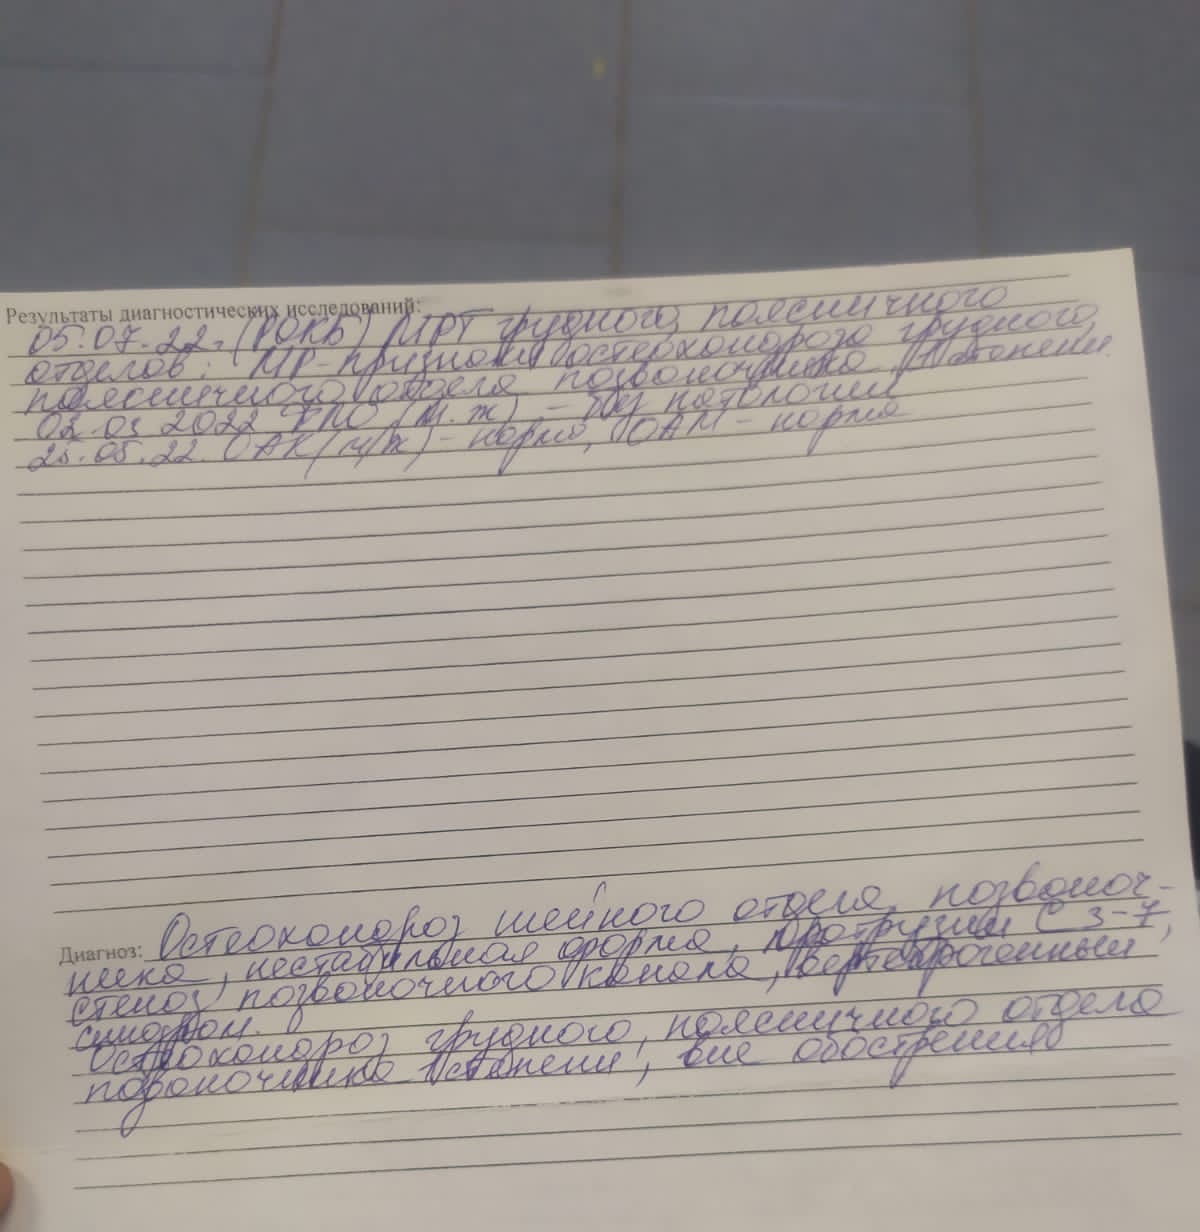 Результаты диагностических исследований:
05.07.22. (РОКБ) МРТ грудного, поясничного
отделов: МР-признаки остеохондроза грудного,
поясничного отдела позвоночника, 1 степени.
03.03.2022 ФЛО (м.ж) - без патологии
25.05.22. ОАК (м/ж) - норма, ОАМ - норма
Диагноз: Остеохондроз шейного отдела позвоноч-
ника, нестабильная форма, протрузии С3-7,
стеноз позвоночного канала, вертеброгенный
синдром.
Остеохондроз грудного, поясничного отдела
позвоночника 1 степени, вне обострения